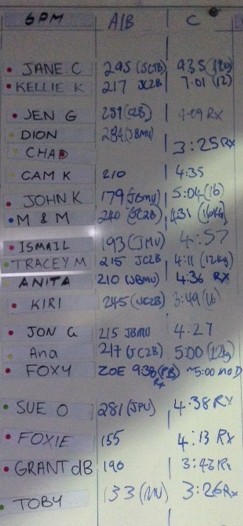 6PM A/B C
JANE C 295 (JC2B) 9.35 (12g)
KELLIE K 217 JC2B 7.01 (12)
JEN G 251 (2B) 4:19 RX
DION 284 (JBMU)
CHAD 3:25 RX
CAM K 210 4:35
JOHN K 179 (JBMU) 5:04 (16)
M & M 240 (JC2B) 4:31 (16kg)
ISMAIL 193 (JMU) 4:57
TRACEY M 215 JC2B 4:11 (12kg)
ANITA 210 (JBMU) 4:36 RX
KIRI 245 (JC2B) 3:49 (16
JON G 215 JBMU 4.27
Ana 217 (JC2B) 5:00 (12g)
FOXY ZOE 938 ~5:00 mod
SUE O 281 (JPU) 4.38 RX
FOXIE 155 4:13 RX
GRANT dB 190 3:43 RX
TOBY 133 (MU) 3:26 RX